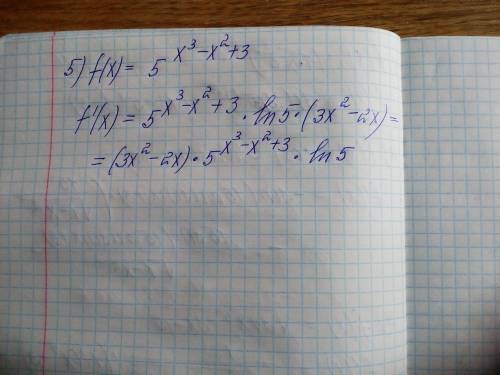 5) f(x) = 5^{x^3-x^2+3}
f'(x) = 5^{x^3-x^2+3} · ln5 · (3x^2-2x) =
= (3x^2-2x) · 5^{x^3-x^2+3} · ln5